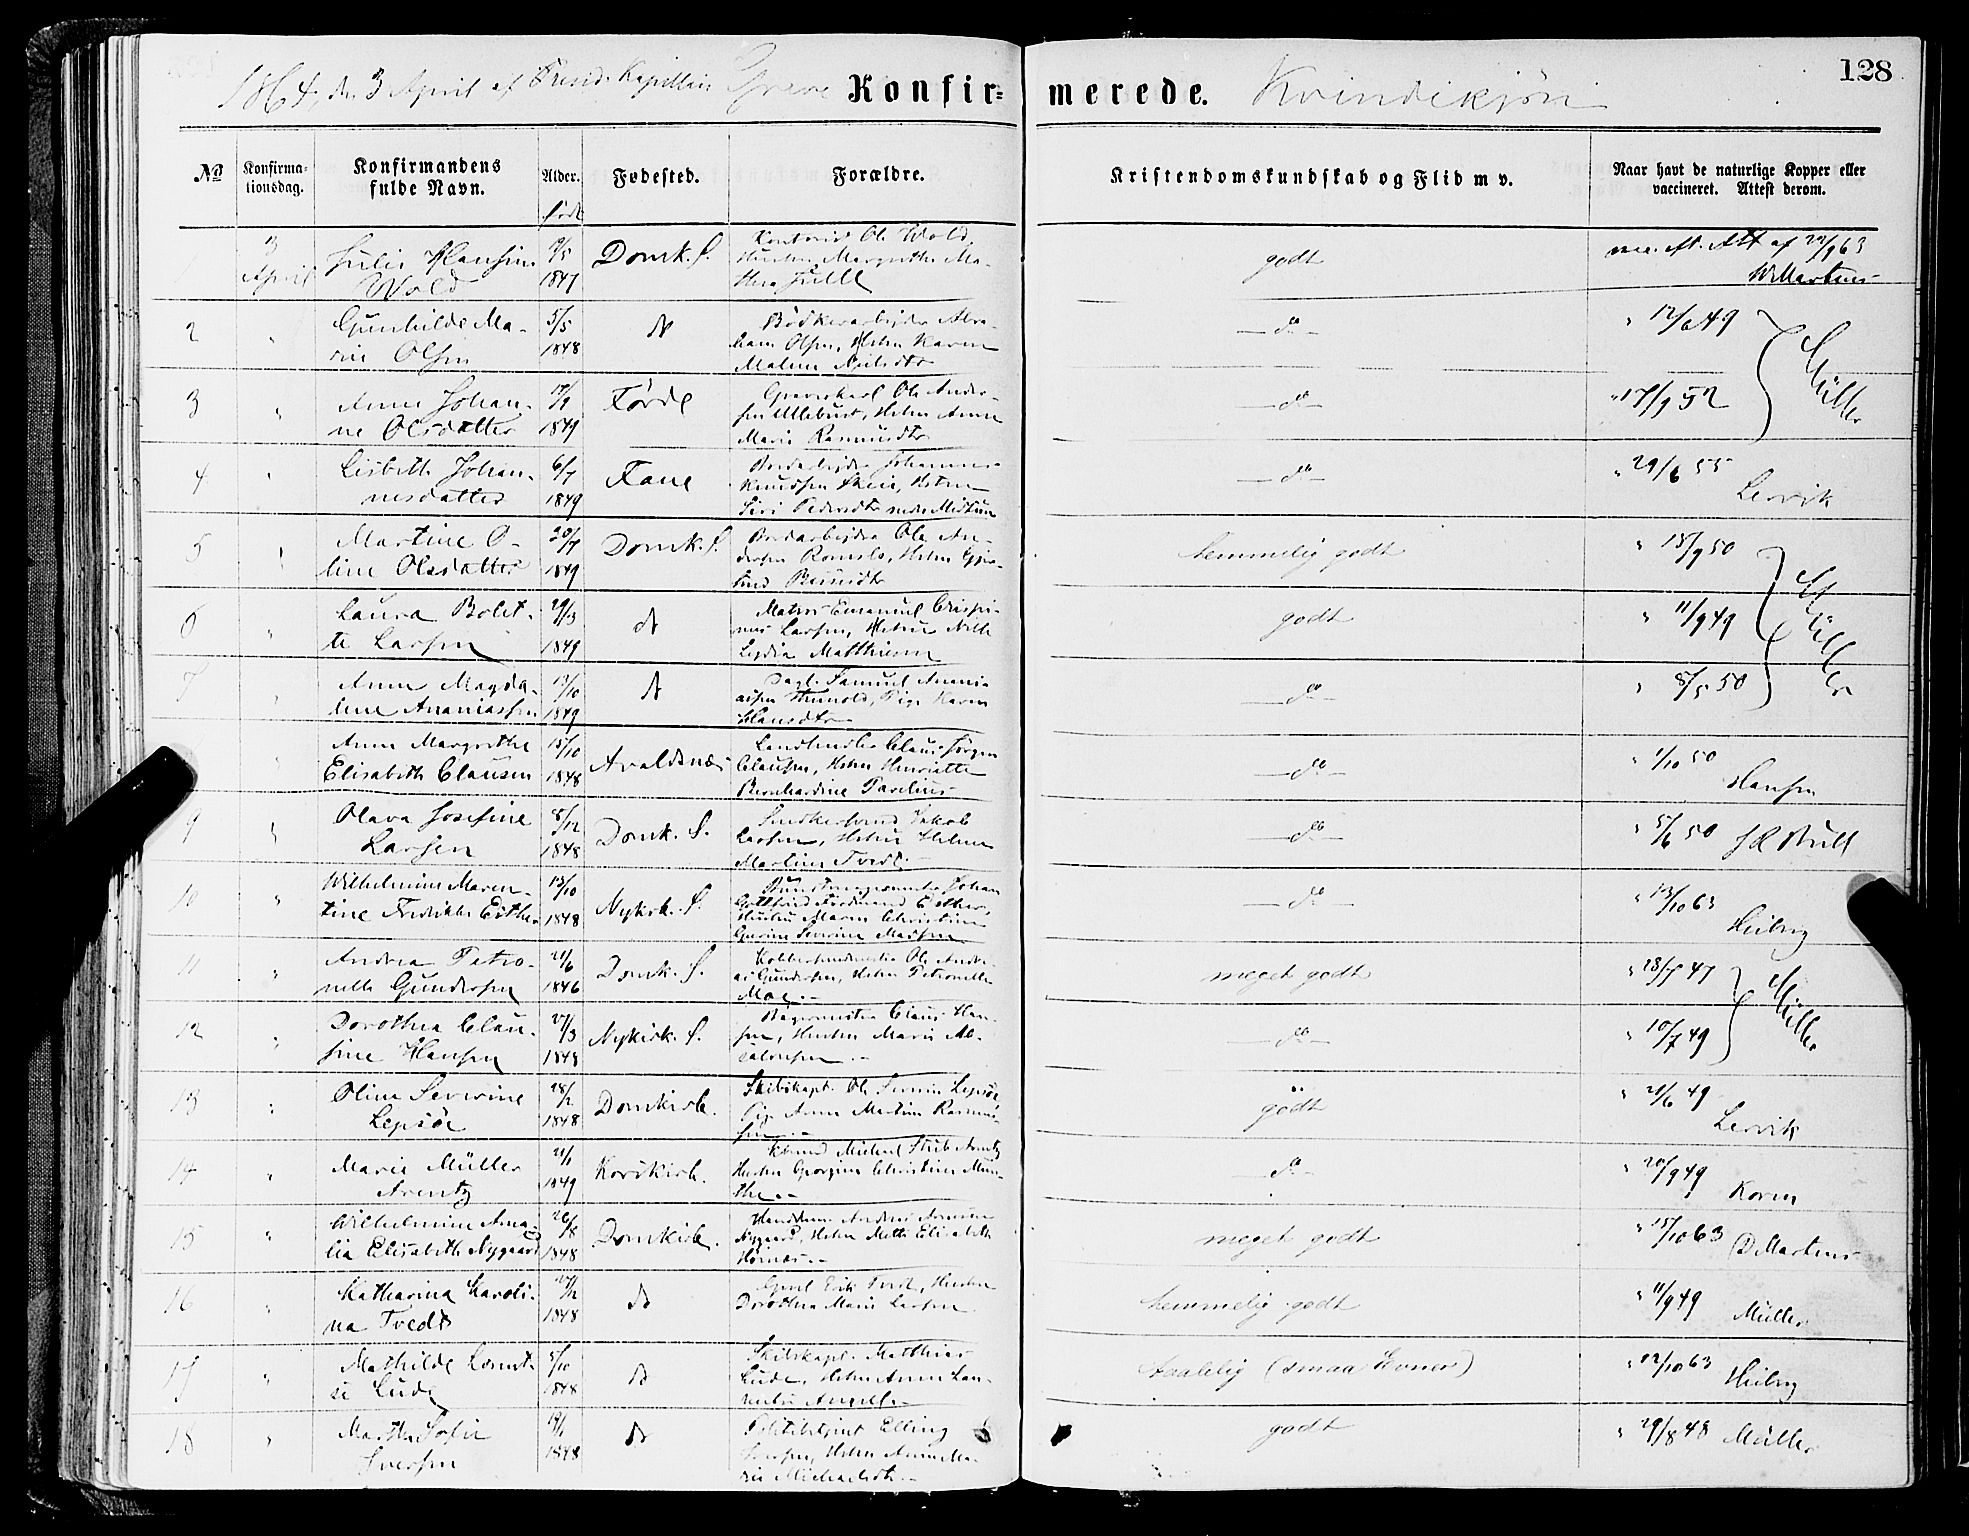 128
1864, den 3 April af Resid. Kapellan Greve Konfir= merede. Kvindekjøn
No
Konfirma-
tionsdag.
Konfirmandens
fulde Navn.
Alder.
født
Fødested.
Forældre.
Kristendomskundskab og Flid m v.
Naar havt de naturlige Kopper eller
vaccineret. Attest derom.
3
April
Julie Hansine
Wold
1847
Domk. S.
Kontorist Ole Wold,
Hustru Margrethe Ma-
godt
vac. eft. Att af 22/9 63
W Martens
2
Gunhilde Ma-
rie Olsen
5/5
1848
do
Bødkerarbejder Abra-
ham Olsen, Hstru Karen
Malene Nielsdtr
do
" 12/6 49
Müller
3
Anne Johan-
ne Olsdatter
17/9
1849
Førde
Ole Ander-
sen Hstru Anne
Marie Rasmusdtr
do
" 17/9 52
4
Lisbeth Johan-
nesdatter
6/7
1849
Fane
Bordarbejder Johannes
Knudsen Skeie, Hstru
Siri Pedersdtr nedre Midtun
do
" 29/6 55
Lervik
5
Martine O-
line Olsdatter
20/7
1849
Domk. S.
Bordarbejder Ole An-
dersen Romslo, Hstru
temmelig godt
" 18/9 50
Müller
6
Laura Bolet-
te Larsen
29/3
1849
do
Matros Emanuel Crispi-
nus Larsen, Hstru Nille
Lydia Matthiesen
godt
" 11/9 49
7
Anne Magda-
lene Ananiassen
13/10
1849
do
Dagl. Samuel Anania-
assen Pige Karen
Hansdtr
do
" 8/5 50
Anne Margrethe
Elisabeth Clausen
15/10
1848
Avaldsnæs
Landhandler Claus Jørgen
Clausen, Hstru Henriette
Bernhardine Parelius
do
" 1/10 50
Hansen
9
Olava Josefine
Larsen
8/12
1848
Domk. S.
Jakob
Larsen, Hstru Helene
Martine Tvedt
do
" 5/6 50 J C Bull
10
Wilhelmine Maren-
tine Fredrikke Esther
13/10
1848
Nykirk. S.
Buntmagermester Johan
Gottfried Ferdinand Esther,
Hustru Maren Christine
Severine Madsen
do
" 13/10 63
Heiberg
11
Andrea Petro-
nelle Gundersen
21/6
1846
Domk. S.
Kobbersmedmester Ole Andre-
as Gundersen, Hstru Petronelle
Moe.
meget godt
" 28/7 47
Müller
12
Dorothea Clau-
sine Hansen
27/3
1848
Nykirk. S.
Bagermester Claus Han-
sen, Hustru Marie Ab-
salonsen
do
" 10/7 49
13
Oline Severine
Lepsøe
28/2
1848
Domkirk.
Skibskapt. Ole Severin Lepsøe,
Pige Anne Martine Rasmus-
sen
godt
" 21/6 49
Lervik
14
Marie Müller
Arentz
21/1
1849
Korskirk.
Kbmd Michael Strib Arentz
Hustru Georgine Christine Mun-
the
do
" 20/9 49
Koren
15
Wilhelmine Ama-
lia Elisabeth Nygaard
26/8
1848
Domkirk.
Nygaard, Hstru Mette Elisabeth
meget godt
" 15/10 63
D Martens
16
Katharina Karoli-
na Tvedt
1848
do
Erik Tvedt, Hustru
Dorothea Marie Larsen
temmelig godt
" 11/9 49
Müller
17
Mathilde Lorent-
se Lude
5/10
1848
do
Skibskapt. Matthias
Lude, Hstru Anne
taalelig (smaa Evner)
" 12/10 63
Heiberg
18
Martha Sofie
Iversen
19/1
1848
do
Politibetjent Elling
Iversen, Hstru Anne Ma-
rie Michaelsdtr
godt
" 29/8 48 Müller